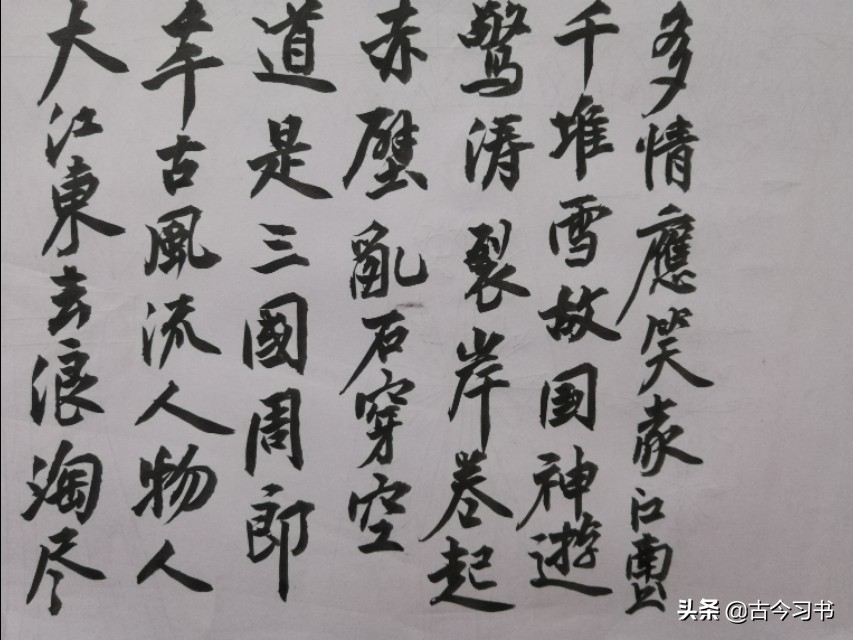 大江東去浪淘尽
古風流人物人
道是三國周郎
赤壁亂石穿空
驚涛裂岸卷起
千堆雪故国神遊
多情應笑江
头条 @古今习书